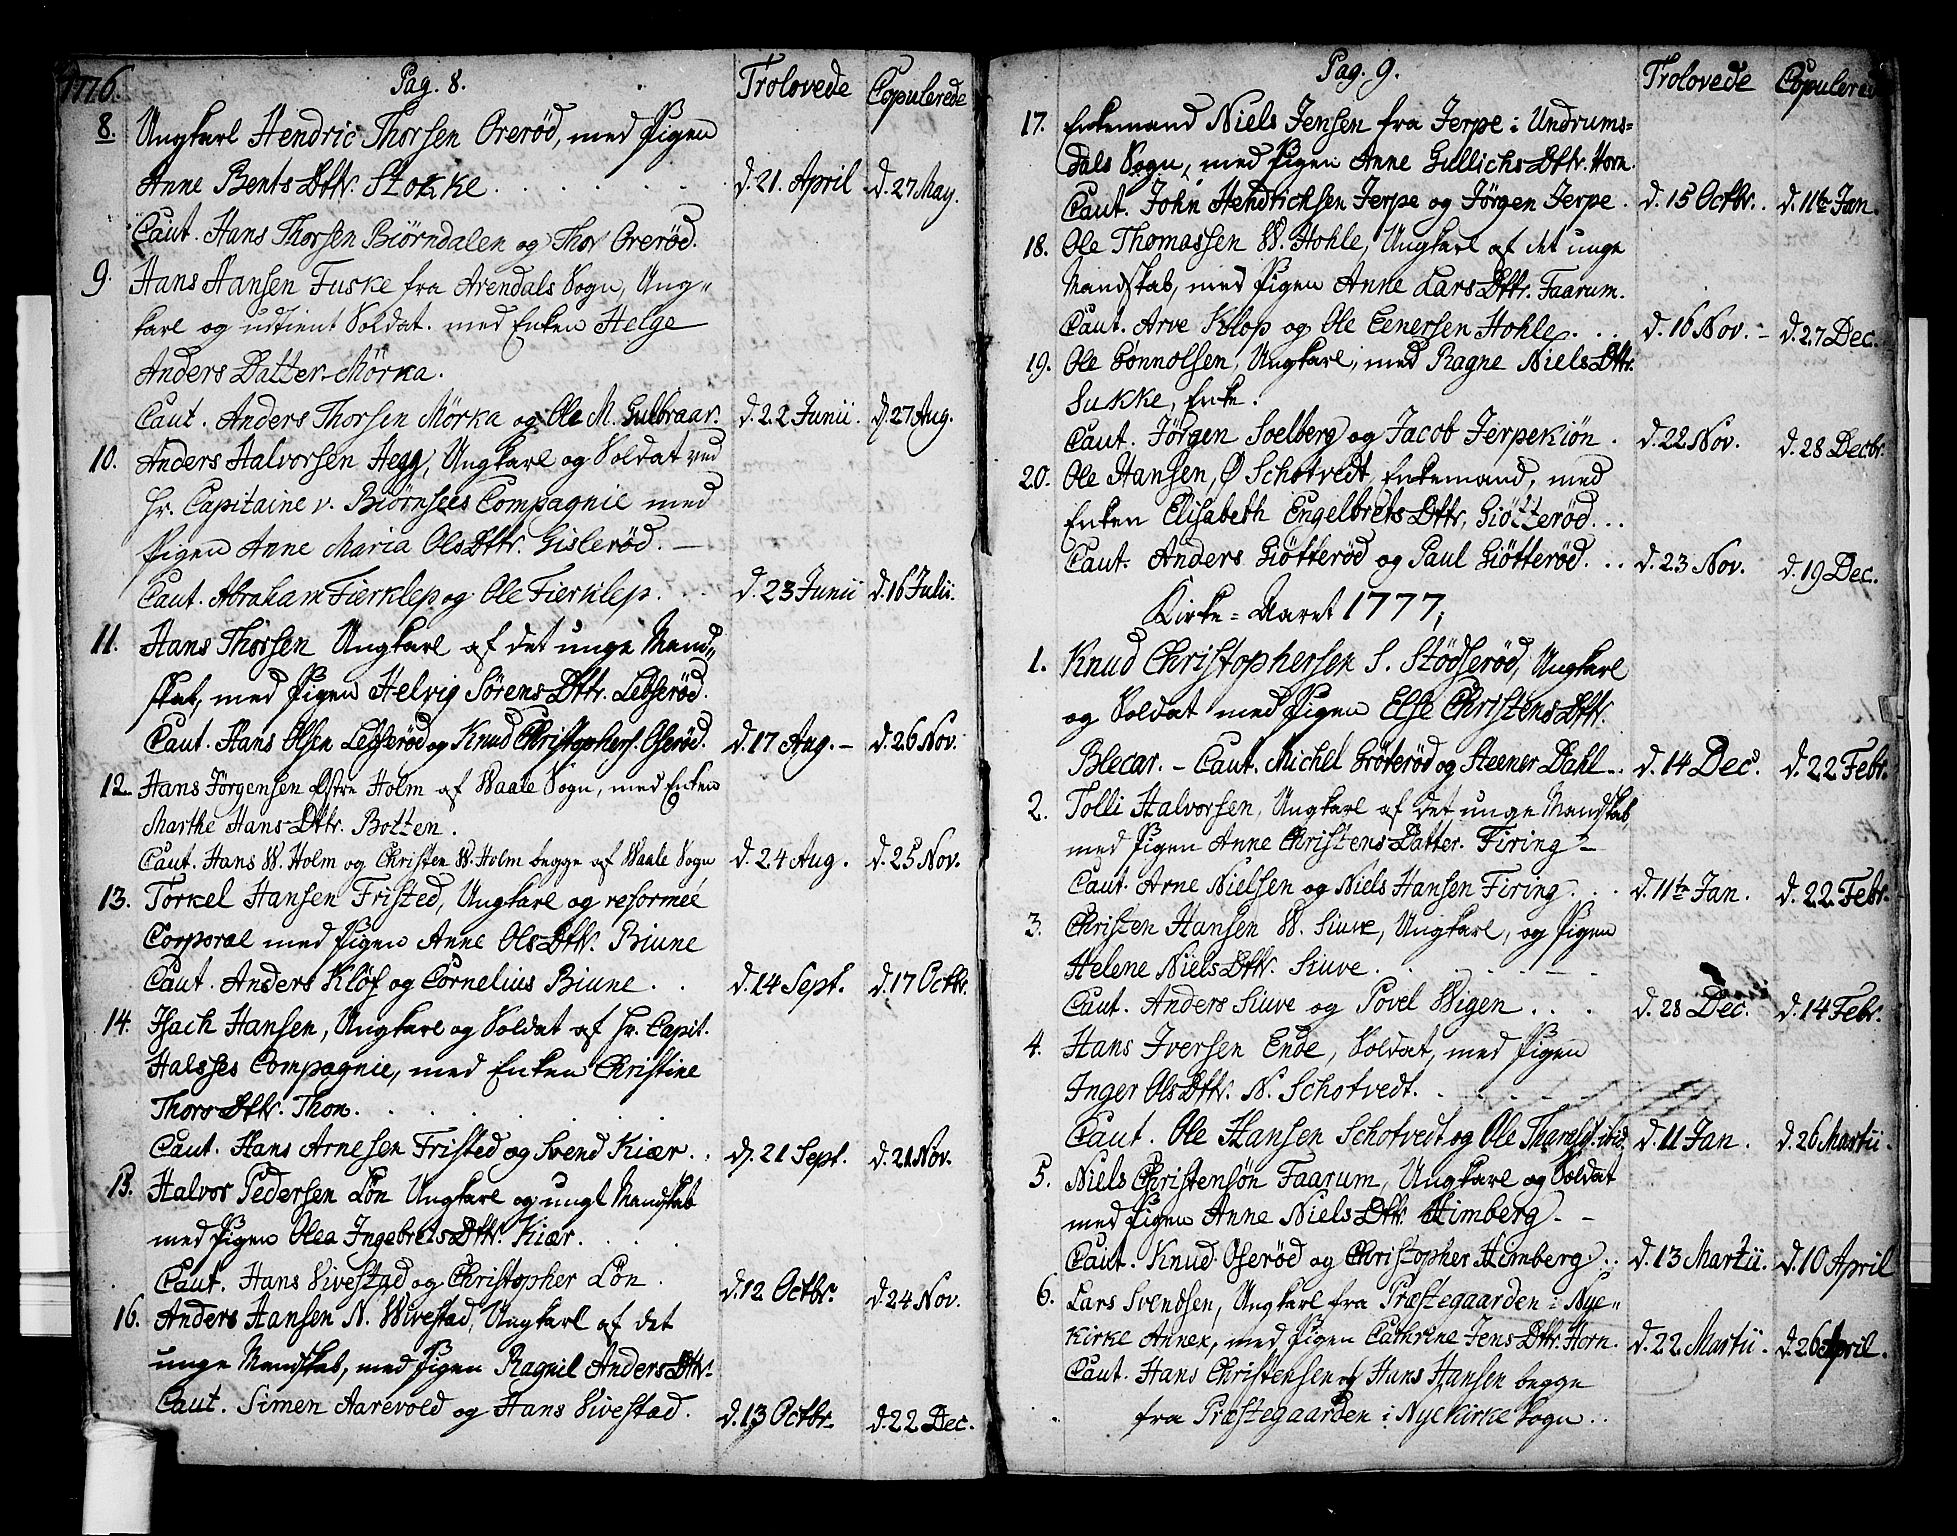 1776. Pag. 8. Trolovede Copulerede
8. Ungkarl Hendric Thorsen Orerød, med Pigen
Anne Bents Dttr. Stokke d. 21. April d. 27 May.
Caut. Hans Thorsen Biørndalen og Thor Orerød.
9. Hans Hansen Fuske fra Arendals Sogn, Ung-
karl og udtient Soldat. med Enken Helge
Anders Datter Mörka.
Caut. Anders Thorsen Mörka og Ole M. Gulbraar. d. 22 Junii. d. 27 Aug.
10. Anders Halvorsen Hegg, Ungkarl og Soldat ved
Hr. Capitaine v. Biørnsees Compagnie med
Pigen Anne Maria Ols Dttr. Gislerød. —
Caut. Abraham Fierklep og Ole Fierklep. d. 23 Junii d. 16 Julii.
11. Hans Thorsen Ungkarl af det unge Mand-
skab, med Pigen Helvig Sörens Dttr. Lebserød.
Caut. Hans Olsen Lebserød og Knud Christophers. Oserød. d. 17 Aug. – d. 26 Nov.
12. Hans Jörgensen Østre Holm af Waale Sogn, med Enken
Marthe Hans Dttr. Botten.
Caut. Hans W. Holm og Christen W. Holm begge af Waale Sogn d. 24 Aug. d. 25 Nov.
13. Torkel Hansen Fristed, Ungkarl og reformeé
Corporal med Pigen Anne Ols Dttr. Biune
Caut. Anders Klöf og Cornelius Biune. d. 14 Sept. d. 17 Octbr.
14. Isach Hansen, Ungkarl og Soldat af Hr. Capit.
Halsses Compagnie, med Enken Christine
Thors Dttr. Thon.
Caut. Hans Arnesen Fristed og Svend Kiær. d. 21 Sept. d. 21 Nov.
15. Halvor Pedersen Lön Ungkarl og ungt Mandskab
med Pigen Olea Ingebrets Dttr. Kiær.
Caut. Hans Vivestad og Christopher Lön. d. 12 Octbr. d. 24 Nov.
16. Anders Hansen N. Wivestad, Ungkarl af det
unge Mandskab, med Pigen Ragnil Anders Dttr.
Caut. Simen Aarevold og Hans Vivestad. d. 13 Octbr. d. 22 Dec.
Pag. 9. Trolovede Copulerede
17. Enkemand Niels Jensen fra Jerpe i Undrums-
dals Sogn, med Pigen Anne Gullichs Dttr. Horn.
Caut. John Hendrichsen Jerpe og Jörgen Jerpe. d. 15 Octbr. d. 11te Jan.
18. Ole Thomassen W. Hohle, Ungkarl af det unge
Mandskab, med Pigen Anne Lars Dttr. Faarum.
Caut. Arve Klop og Ole Eenersen Hohle. d. 16 Nov. – d. 27 Dec.
19. Ole Gönnolsen, Ungkarl, med Ragne Niels Dttr.
Sukke, Enke.
Caut. Jörgen Soelberg og Jacob Jerpekiön. d. 22 Nov. d. 28 Decbr.
20. Ole Hansen, Ø Schotvedt, Enkemand, med
Enken Elisabeth Engelbrets Dttr. Giötterød...
Caut. Anders Giötterød og Paul Giötterød. d. 23 Nov. d. 19 Dec.
Kirke-Aaret 1777;
1. Knud Christophersen S. Stödserød, Ungkarl
og Soldat med Pigen Else Christens Dttr.
Blecar. – Caut. Michel Gröterød og Steener Dahl. d. 14 Dec. d. 22 Febr.
2. Tolli Halvorsen, Ungkarl af det unge Mandskab,
med Pigen Anne Christens Datter. Firing –
Caut. Arne Nielsen og Niels Hansen Firing. d. 11te Jan. d. 22 Febr.
3. Christen Hansen W. Siuve, Ungkarl, og Pigen
Helene Niels Dttr. Siuve.
Caut. Anders Siuve og Povel Wigen... d. 28 Dec. d. 14 Febr.
4. Hans Iversen Ende, Soldat, med Pigen
Inger Ols Dttr. N. Schotvedt.
Caut. Ole Hansen Schotvedt og Ole ibid. d. 11 Jan. d. 26 Martii.
5. Niels Christensön Faarum, Ungkarl og Soldat
med Pigen Anne Niels Dttr. Himberg. –
Caut. Knud Oserød og Christopher Himberg. d. 13 Martii. d. 10 April
6. Lars Svendsen, Ungkarl fra Præstegaarden i Nye-
kirke Annex, med Pigen Cathrine Jens Dttr. Horn. d. 22 Martii. d. 26 April.
Caut. Hans Christensen og Hans Hansen begge
fra Præstegaarden i Nyekirke Sogn..